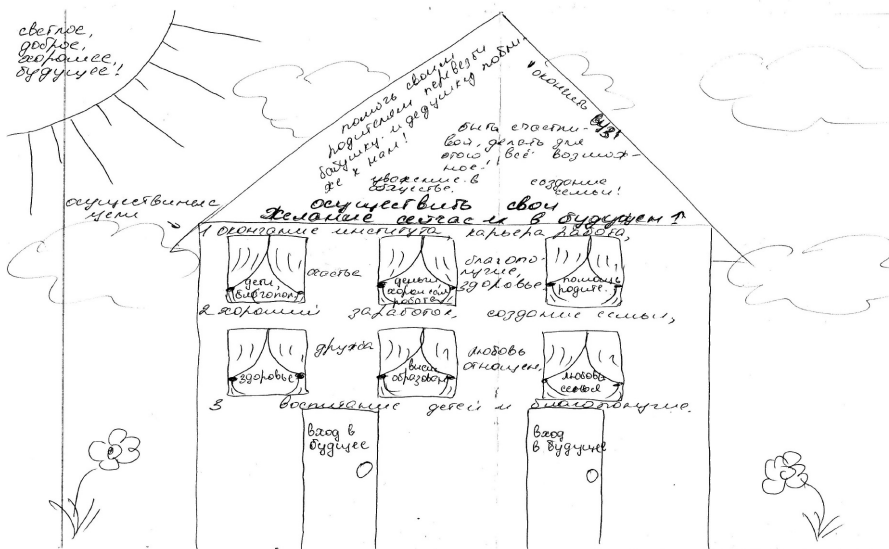 светлое,
доброе,
хорошее,
будущее!
помочь своим
родителям перевезти
бабушку и дедушку побли-
же к нам!
окончить ВУЗ
быть счастли-
вой, делать для
этого всё возмож-
ное!
уважение в
обществе.
создание
семьи!
осуществить свои
желание сейчас и в будущем
осуществиные
цели
1 окончание института, карьера работа,
дети,
благопол
счастье
деньги
хорошая
работа
благопо-
лучие,
здоровье
помощь
родите.
2 хороший заработок создание семьи,
здоровье
дружба
высш
образован
любовь
отношен.
любовь
семья
3 воспитание детей и благополучие.
вход в
будущее
вход
в будущее